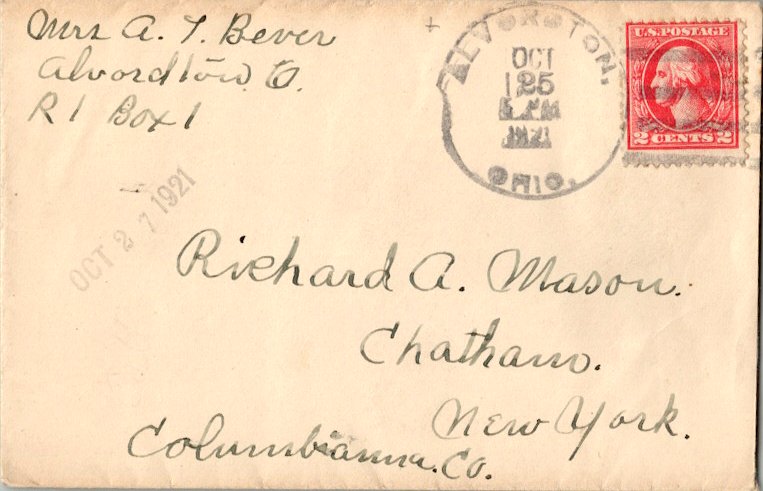 Mrs A. T. Bever
Alvordtown O.
R 1 Box 1
ALVORDTON,
OCT
25
1921
OHIO.
U.S. POSTAGE
2 CENTS 2
OCT 27 1921
Richard A. Mason.
Chatham.
New York.
Columbianna. Co.